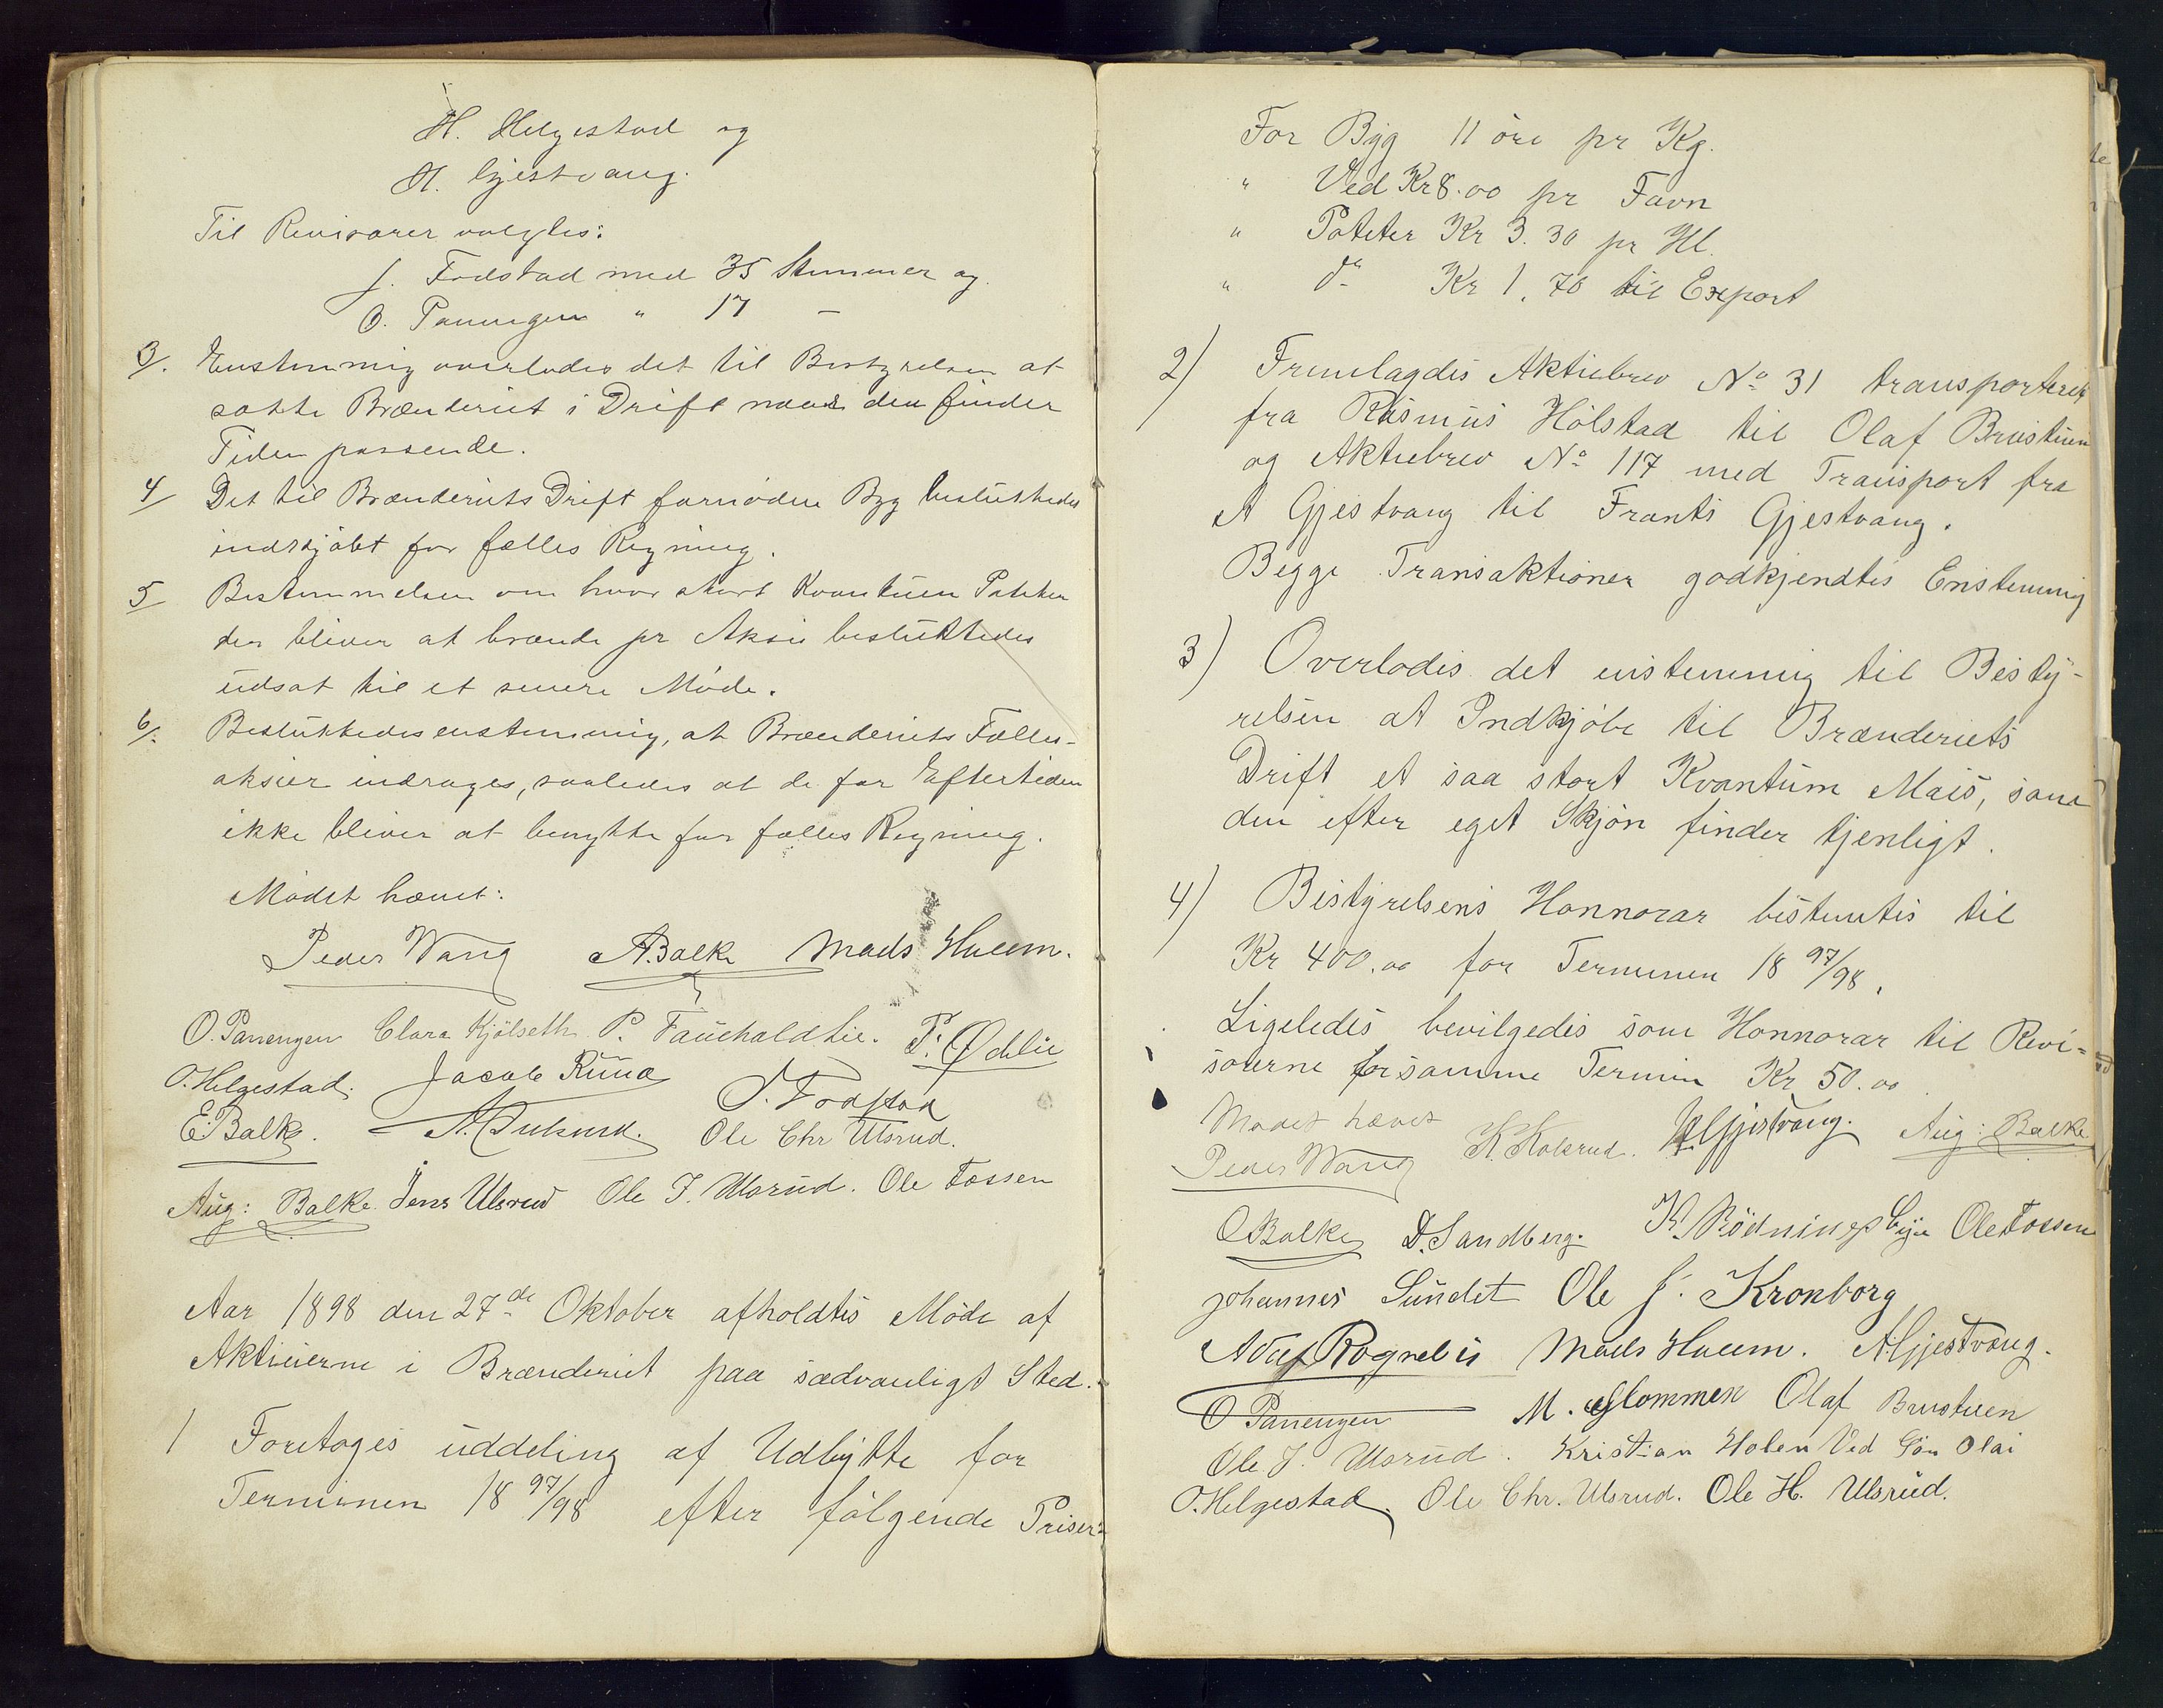 H. Helgestad og
A. Gjestvang.
Til Revisorer valgtes:
J. Fodstad med 35 Stemmer og
O. Panengen " 17 -
3/. Enstemmig overlodes det til Bestyrelsen at
sætte Brænderiet i Drift naar den finder
Tiden passende.
4/ Det til Brænderiets Drift fornødne Byg besluttedes
indkjøbt for fælles Regning.
5/ Bestemmelsen om hvor stort Kvantum Poteter
der bliver at brænde pr Aksie besluttedes
udsat til et senere Møde.
6/. Besluttedes enstemmig, at Brænderiets Fælles-
aksier inddrages, saaledes at de for Eftertiden
ikke bliver at benytte for fælles Regning.
Mødet hævet:
Peder Wang A. Balke Mads Hueem.
O. Panengen Clara Kjölseth P. Faucholdlie. P. Ødelie
O. Helgestad. Jacob Rüna J. Fodstad
E. Balke. Ole Chr Ulsrud.
Aug: Balke. Jens Ulsrud Ole J. Ulsrud. Ole Fossen
Aar 1898 den 27de Oktober afholdtes Møde af
Aktieierne i Brænderiet paa sædvanligt Sted.
1 Foretoges uddeling af Udbytte for
Terminen 18 97/98 efter følgende Priser:
For Byg 11 öre pr Kg.
" Ved Kr 8.00 pr Favn
" Poteter Kr 3.30 pr Hl.
" do Kr 1.70 til Export
2) Fremlagdes Aktiebrev No 31 transporteret
fra Rasmus Hölstad til Olaf Brustuen
og Aktiebrev No 117 med Transport fra
A Gjestvang til Frants Gjestvang.
Begge Transaktioner godkjendtes Enstemmig
3) Overlodes det enstemmig til Besty-
relsen at Indkjöbe til Brænderiets
Drift et saa stort Kvantum Mais, som
den efter eget Skjön finder tjenligt.
4) Bestyrelsens Honnorar bestemtes til
Kr 400.00 for Terminen 18 97/98.
Ligeledes bevilgedes som Honnorar til Revi=
sorerne for samme Termin Kr 50.00
Mødet hævet
Peder Wang K. Kolsrud. H Gjestvang. Aug: Balke
O Balke D. Sandberg. K. Rödningsbye Ole Fossen
Johannes Sundet Ole J. Kronborg
Adolf Rognelie Mads Hueem. A Gjestvang.
O Panengen M. Glommen Olaf Brustuen
Ole J. Ulsrud. Kristian Holen Ved Sön Olai
O. Helgestad. Ole Chr. Ulsrud. Ole H. Ulsrud.